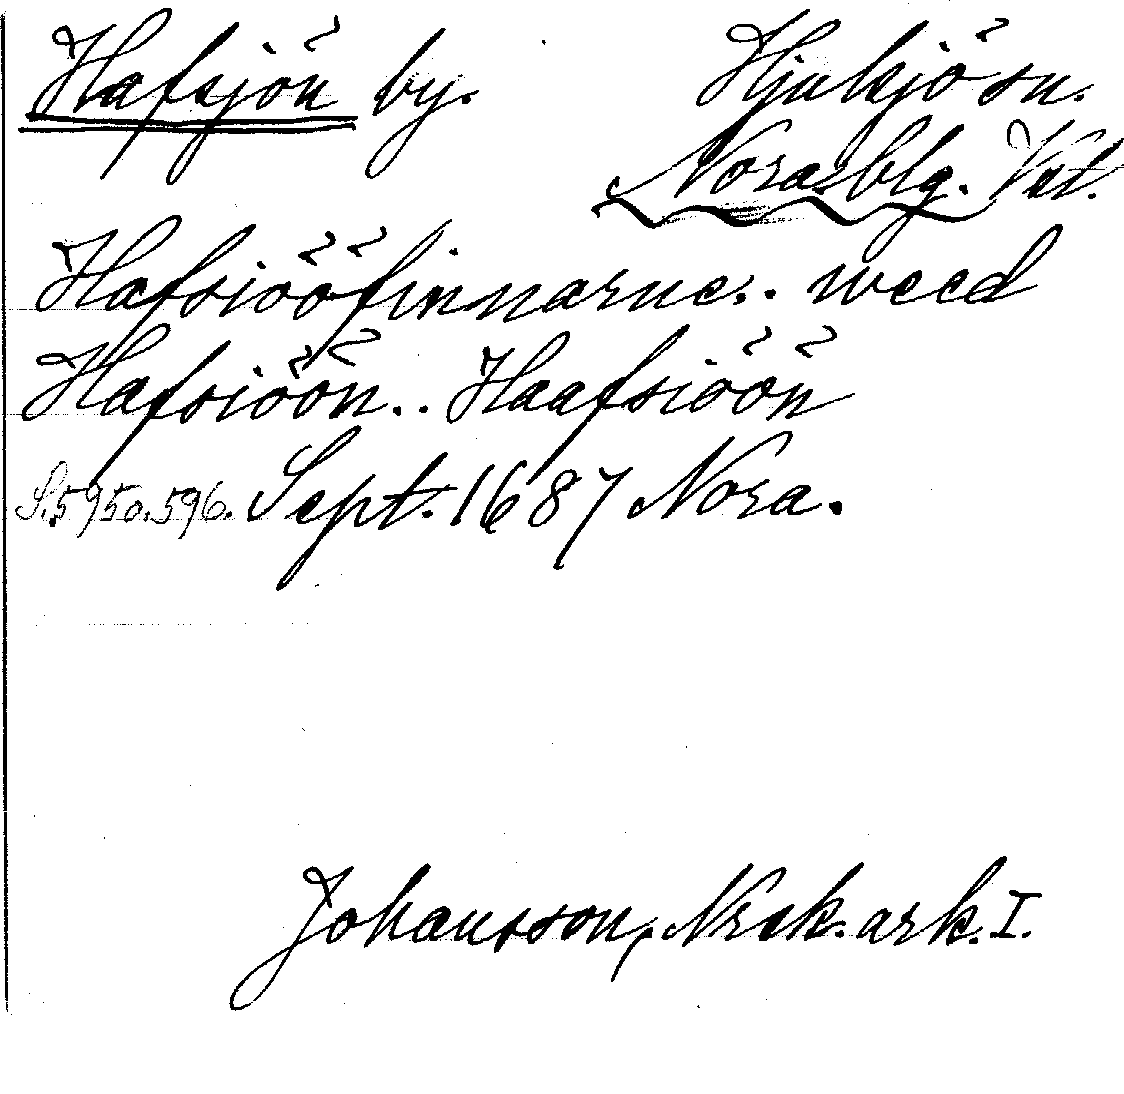 Hafsjön by. Hjulsjö sn.
Nora blg. Vstl.
Hafsiööfinnarne.. weed
Hafsiöön.. Haafsiöön
S. 595 o. 596. Sept. 1687 Nora.
Johansson, Norask. ark. I.